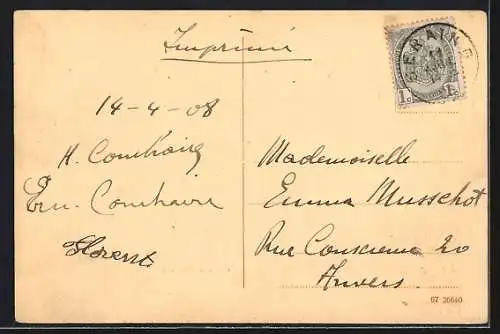 Imprimé
SERAING
1c 1c
14-4-08
H. Comhaire
Em. Comhaire
Florent
Mademoiselle
Emma Musschot
Rue Conscience 20
Anvers.
07 20640